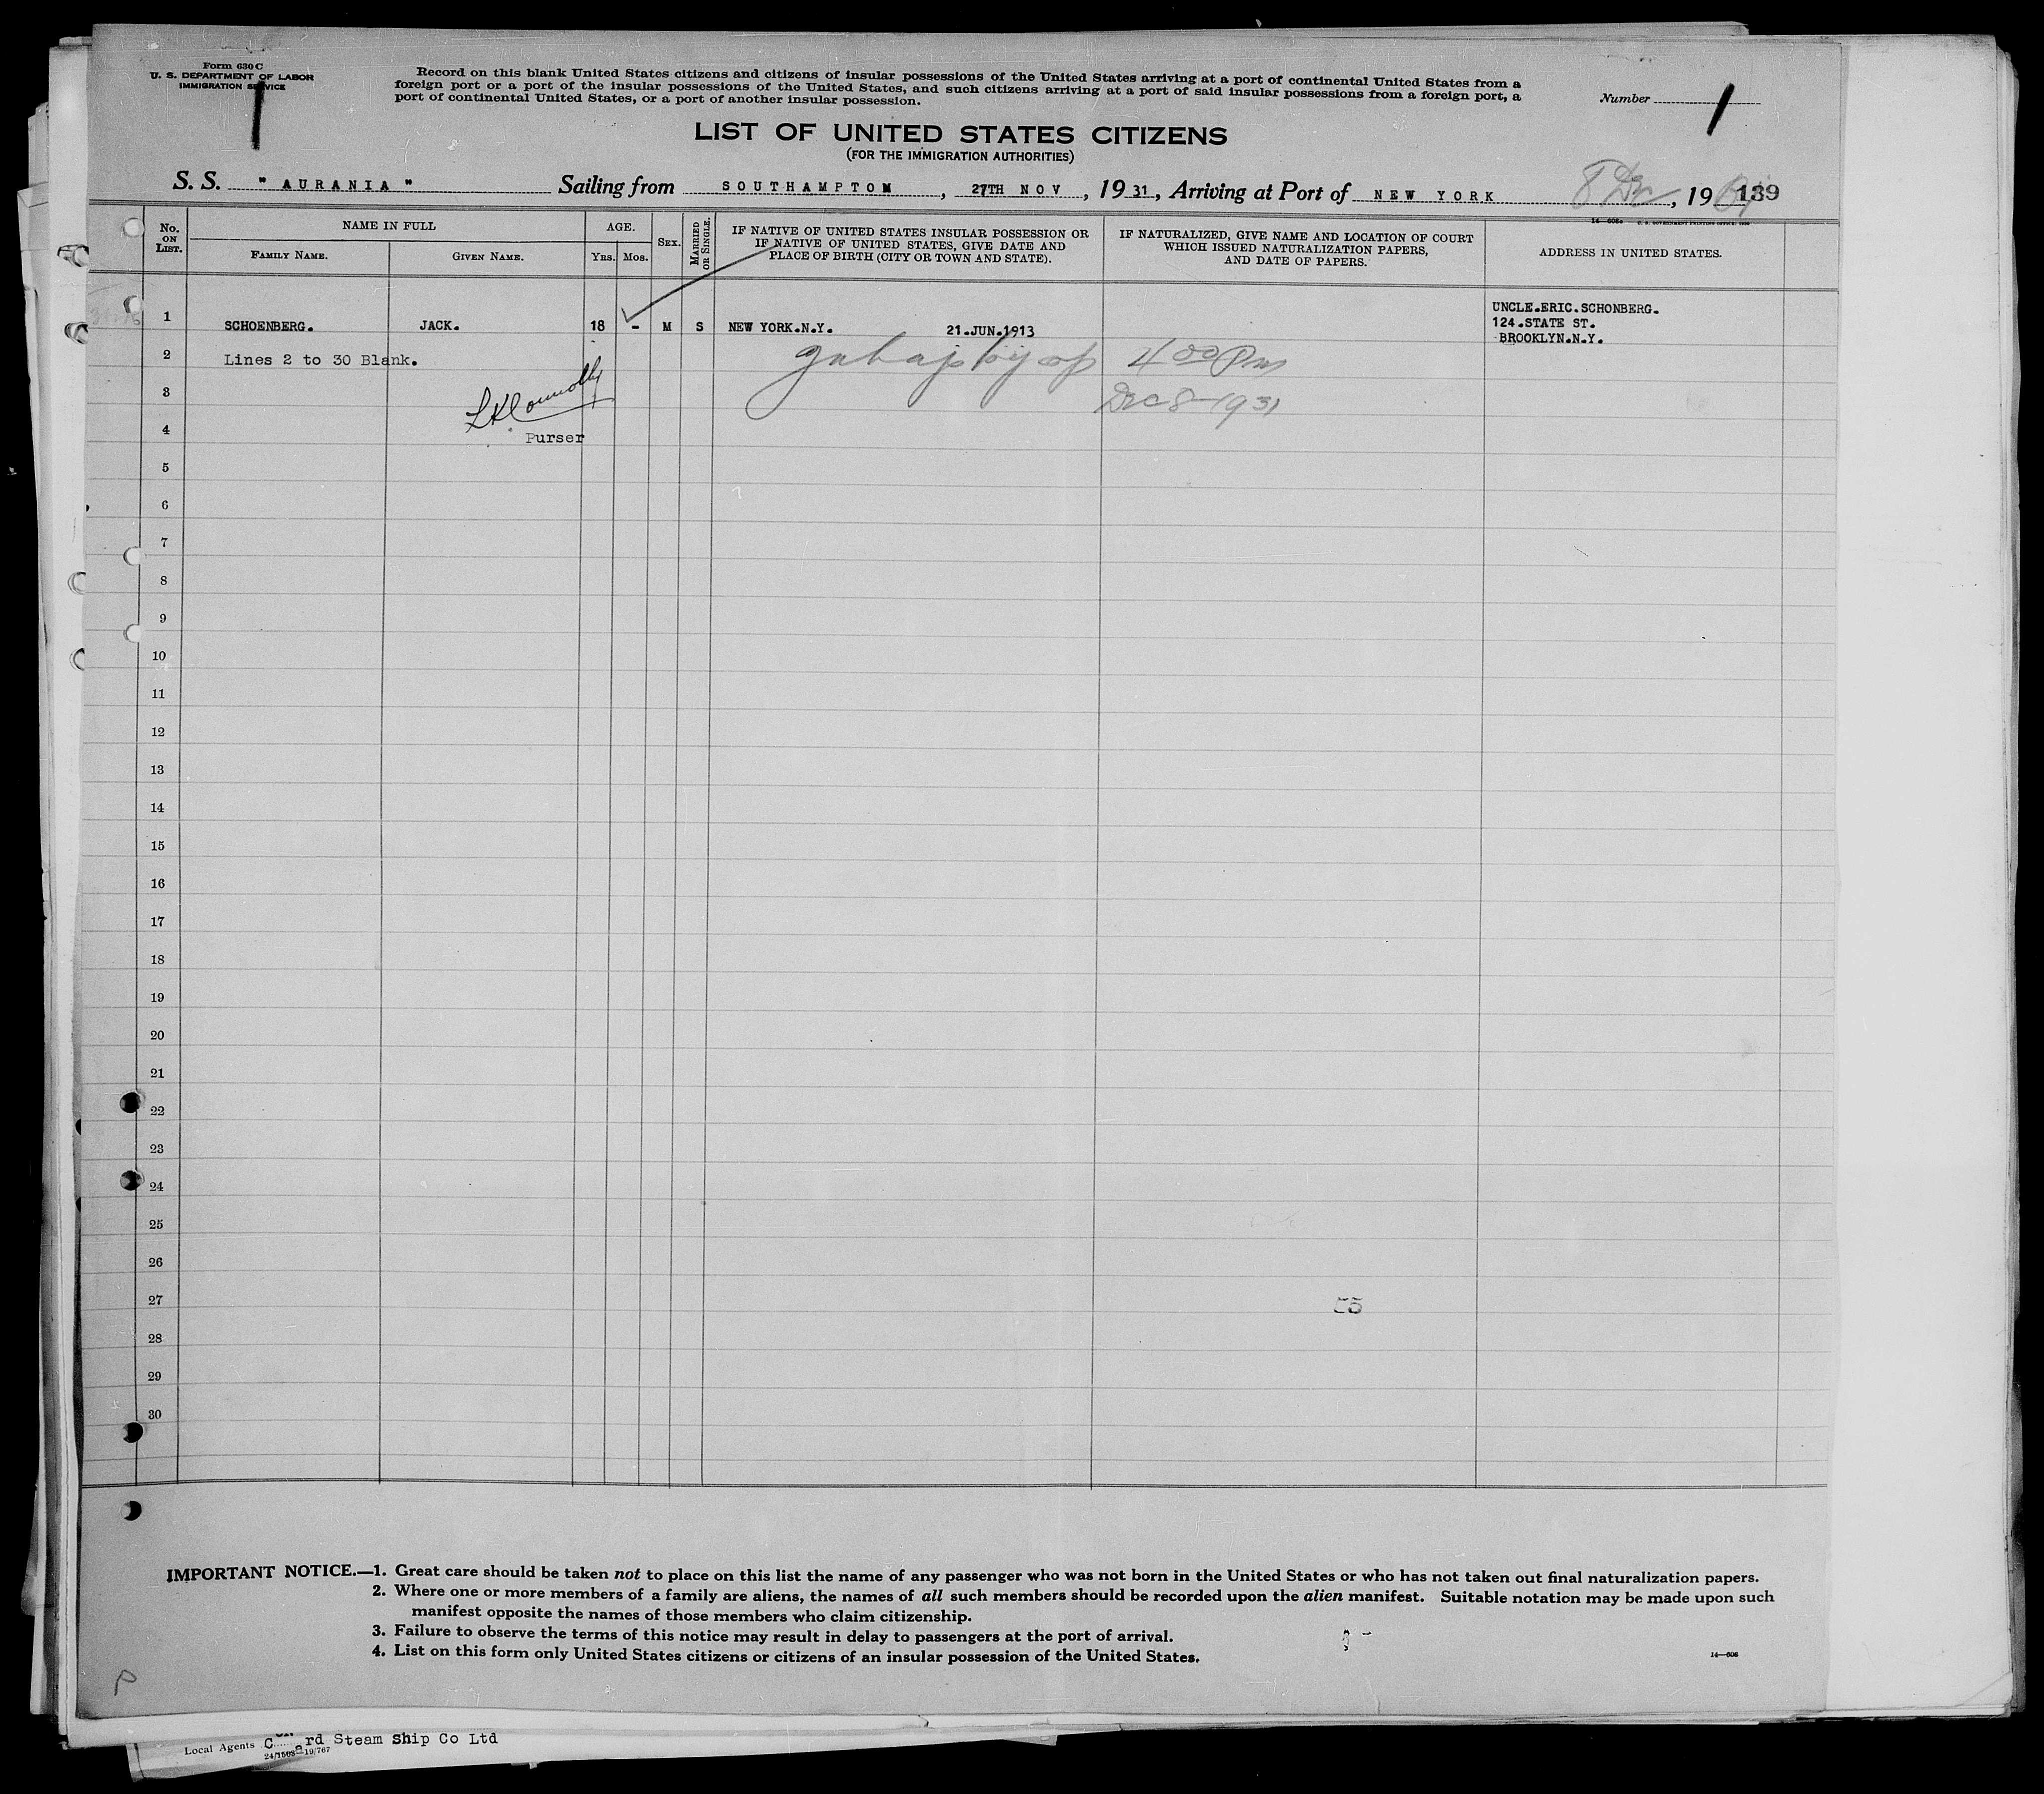 Form 630 C
U. S. DEPARTMENT OF LABOR
IMMIGRATION SERVICE
Record on this blank United States citizens and citizens of insular possessions of the United States arriving at a port of continental United States from a
foreign port or a port of the insular possessions of the United States, and such citizens arriving at a port of said insular possessions from a foreign port, a
port of continental United States, or a port of another insular possession.
Number 1
LIST OF UNITED STATES CITIZENS
(FOR THE IMMIGRATION AUTHORITIES)
S. S. " AURANIA " Sailing from SOUTHAMPTON, 27TH NOV, 19 31, Arriving at Port of NEW YORK 8 Dec, 19 139
No. ON LIST.
NAME IN FULL
FAMILY NAME.
GIVEN NAME.
AGE.
YRS.
MOS.
SEX.
MARRIED OR SINGLE.
IF NATIVE OF UNITED STATES INSULAR POSSESSION OR
IF NATIVE OF UNITED STATES, GIVE DATE AND
PLACE OF BIRTH (CITY OR TOWN AND STATE).
IF NATURALIZED, GIVE NAME AND LOCATION OF COURT
WHICH ISSUED NATURALIZATION PAPERS,
AND DATE OF PAPERS.
ADDRESS IN UNITED STATES.
1 SCHOENBERG. JACK. 18 - M S NEW YORK.N.Y. 21.JUN.1913 UNCLE.ERIC.SCHONBERG.
124.STATE ST.
BROOKLYN.N.Y.
2 Lines 2 to 30 Blank. 4 00 Pm
3 Dec 8-1931
4 Purser
5
6
7
8
9
10
11
12
13
14
15
16
17
18
19
20
21
22
23
24
25
26
27
28
29
30
IMPORTANT NOTICE.—1. Great care should be taken not to place on this list the name of any passenger who was not born in the United States or who has not taken out final naturalization papers.
2. Where one or more members of a family are aliens, the names of all such members should be recorded upon the alien manifest. Suitable notation may be made upon such
manifest opposite the names of those members who claim citizenship.
3. Failure to observe the terms of this notice may result in delay to passengers at the port of arrival.
4. List on this form only United States citizens or citizens of an insular possession of the United States.
14—606
P
Local Agents C rd Steam Ship Co Ltd